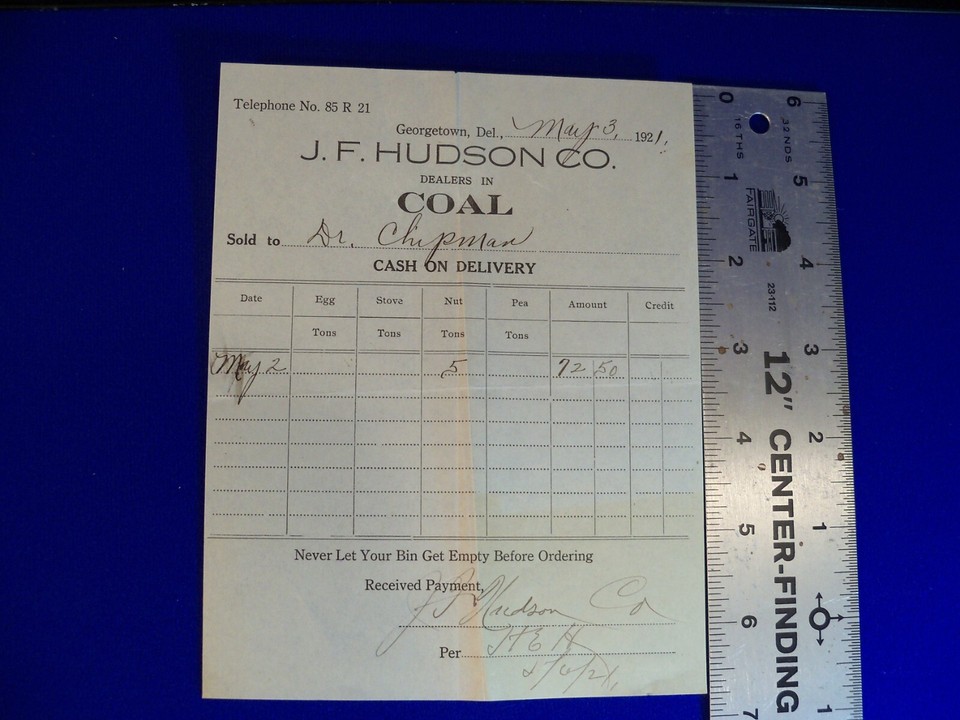 Telephone No. 85 R 21
Georgetown, Del., May 3, 1921.
J. F. HUDSON CO.
DEALERS IN
COAL
Sold to Dr. Chipman
CASH ON DELIVERY
Date Egg Stove Nut Pea Amount Credit
Tons Tons Tons Tons
May 2 5 72 50
Never Let Your Bin Get Empty Before Ordering
Received Payment,
J F Hudson Co
Per H E H
5/6/21.
0 1 2 3 4 5 6 7
16 THS
FAIRGATE
12" CENTER-FINDING
6 5 4 3 2 1 1
32 NDS
23-112